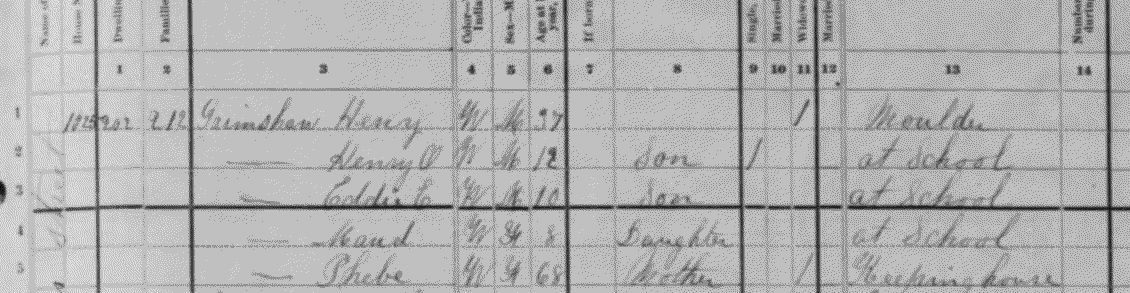 Name of House Dwelling Families Color— Sex— Age at year, If born Single, Married Widowed Married Number during
1 2 3 4 5 6 7 8 9 10 11 12 13 14
1 212 Grimshaw Henry W M 37 1 Moulder
2 — Henry O W M 12 Son 1 at School
3 — Eddie E W M 10 Son at School
4 — Maud W F 8 Daughter at School
5 — Phebe W F 68 Mother 1 Keeping house